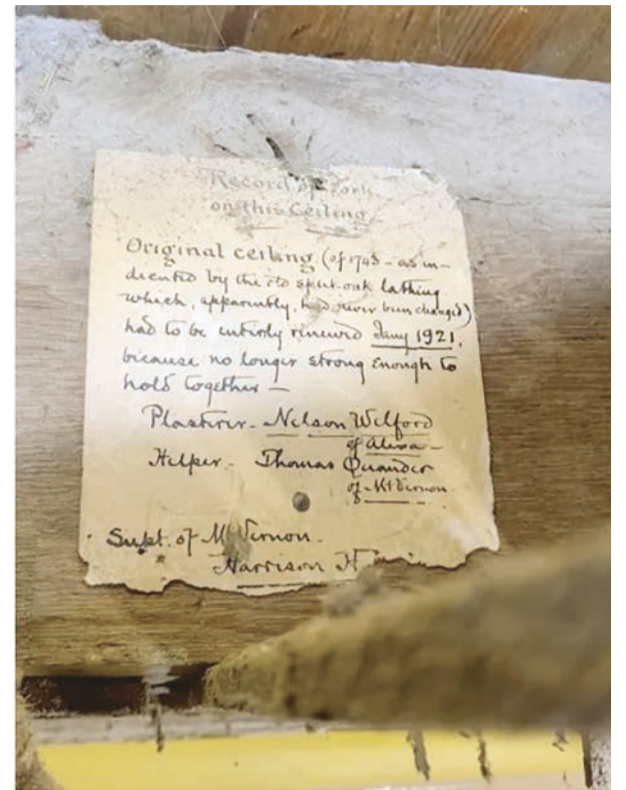 Record of Work
on this Ceiling
Original ceiling (of 1743 - as in-
dicated by the old split-oak lathing
which, apparently, had never been changed)
had to be entirely renewed Jany 1921,
because no longer strong enough to
hold together —
Plasterer - Nelson Welford
of Alexa -
Helper - Thomas Quander
of Mt Vernon.
Supt. of Mt Vernon.
Harrison H